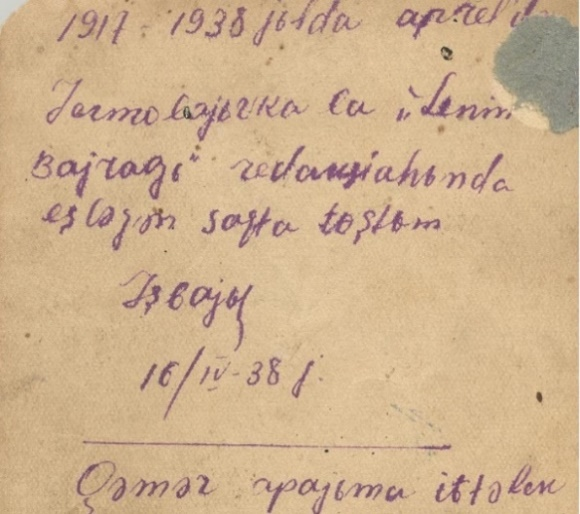 1917 - 1938 jьlda aprel'də
Jermolajьvka la "Lenin
Bajragь" redaksiahьnda
eşləgən saqta tɵştɵm
Işbajь
16/IV-38 j.
Qəmər apajьma iθtəlek